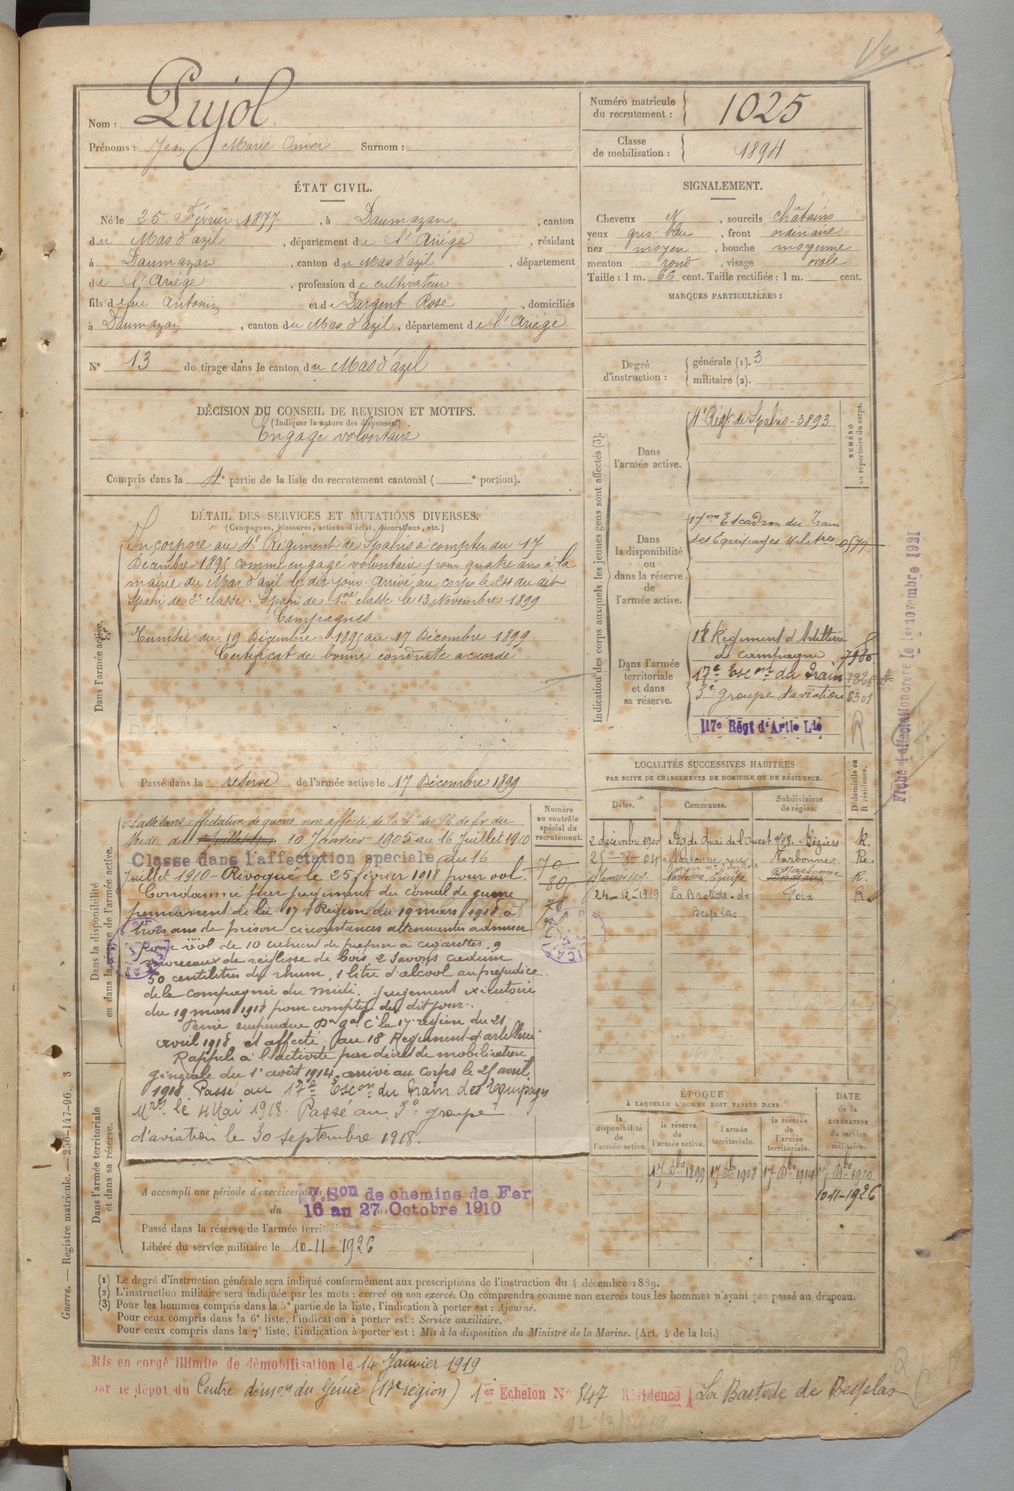 Nom : Pujol
Prénoms : Jean Marie Omer Surnom :
Numéro matricule du recrutement : 1025
Classe de mobilisation : 1894
ÉTAT CIVIL.
Né le 25 Février 1877, à Daumazan, canton
du Mas d'azil, département de l'Ariége, résidant
à Daumazan, canton du Mas d'azil, département
de l'Ariége, profession de cultivateur
fils de feu Antonin et de Dargent Rose, domiciliés
à Daumazan, canton du Mas d'azil, département de l'Ariége
N° 13 de tirage dans le canton du Mas d'azil
SIGNALEMENT.
Cheveux N, sourcils châtains
yeux gris-bleu, front ordinaire
nez moyen, bouche moyenne
menton rond, visage ovale
Taille : 1 m. 66 cent. Taille rectifiée : 1 m. cent.
MARQUES PARTICULIÈRES :
Degré d'instruction : générale (1). 3
militaire (2).
DÉCISION DU CONSEIL DE REVISION ET MOTIFS.
(Indiquer la nature des dispenses)
Engagé volontaire
Compris dans la 4e partie de la liste du recrutement cantonal ( e portion).
DÉTAIL DES SERVICES ET MUTATIONS DIVERSES.
(Campagnes, blessures, actions d'éclat, décorations, etc.)
Dans l'armée active.
Incorporé au 4e Régiment de Spahis à compter du 17
Décembre 1895 comme engagé volontaire pour quatre ans à la
mairie du Mas d'azil le dit jour. Arrivé au corps le 24 du dit
Spahi de 2e classe. Spahi de 1ère classe le 13 Novembre 1899
Campagnes
Tunisie du 19 Décembre 1895 au 17 Décembre 1899
Certificat de bonne conduite accordé
Passé dans la réserve de l'armée active le 17 Décembre 1899
Indication des corps auxquels les jeunes gens sont affectés (3).
NUMÉRO au répertoire du corps.
Dans l'armée active.
4e Régt de Spahis - 3893
Dans la disponibilité ou dans la réserve de l'armée active.
17me Escadron du Train
des Equipages Militres
Dans l'armée territoriale et dans sa réserve.
18 Regiment d'Artillerie
de campagne
17e Escon du Train
3e groupe d'aviation 6301
117e Régt d'Artie Lde
Fiche d'affectation créée le 1er novembre 1921
LOCALITÉS SUCCESSIVES HABITÉES
PAR SUITE DE CHANGEMENTS DE DOMICILE OU DE RÉSIDENCE.
Dates. Communes. Subdivisions de région. D. domicile ou R. résidence.
2 décembre 1900 Béziers R.
Narbonne Narbonne Re.
24-12-1919 La Bastide de Besplas Foix R
Dans la disponibilité ou dans la réserve de l'armée active.
Numéro au contrôle spécial du recrutement.
10 Janvier 1905 au 16 Juillet 1910
Classé dans l'affectation spéciale du 16
Juillet 1910 - Révoqué le 25 février 1918 pour vol.
Condamné par jugement du conseil de guerre
permanent de la 17e Région du 19 mars 1918 à
trois ans de prison circonstances atténuantes admises
pour vol de 10 cahiers de papier à cigarettes, 9
morceaux de réglisse de bois, 2 savons cadum
50 centilitres de rhum, 1 litre d'alcool au préjudice
de la compagnie du midi. Jugement exécutoire
du 19 mars 1918 pour compter du dit jour.
Peine suspendue Don gal Ct la 17e région du 21
avril 1918 et affecté au 18 Régiment d'artillerie
Rappelé à l'activité par décret de mobilisation
générale du 1er août 1914, arrivé au corps le 25 avril
1918. Passé au 17e Escon du Train des Equipages
Mres le 4 Mai 1918. Passé au 3e groupe
d'aviation le 30 septembre 1918.
Dans l'armée territoriale et dans sa réserve.
A accompli une période d'exercices dans
7. Son de chemins de Fer
du 16 au 27 Octobre 1910
Passé dans la réserve de l'armée territ
Libéré du service militaire le 10-11-1926
ÉPOQUE
À LAQUELLE L'HOMME DOIT PASSER DANS
la disponibilité de l'armée active. la réserve de l'armée active. l'armée territoriale. la réserve de l'armée territoriale.
DATE de la LIBÉRATION du service militaire.
17 Dbre 1899 17 Dbre 1908 17 Dbre 1914 17 Dbre 1920
10-11-1926
(1) Le degré d'instruction générale sera indiqué conformément aux prescriptions de l'instruction du 4 décembre 1889.
(2) L'instruction militaire sera indiquée par les mots : exercé ou non exercé. On comprendra comme non exercés tous les hommes n'ayant pas passé au drapeau.
(3) Pour les hommes compris dans la 5e partie de la liste, l'indication à porter est : Ajourné.
Pour ceux compris dans la 6e liste, l'indication à porter est : Service auxiliaire.
Pour ceux compris dans la 7e liste, l'indication à porter est : Mis à la disposition du Ministre de la Marine. (Art. 4 de la loi.)
Guerre. — Registre matricule. — 256-147-96. 3
Mis en congé illimité de démobilisation le 14 Janvier 1919
par le dépôt du Centre démon du Génie (17e région) 1er Echelon No 547 Résidence La Bastide de Besplas